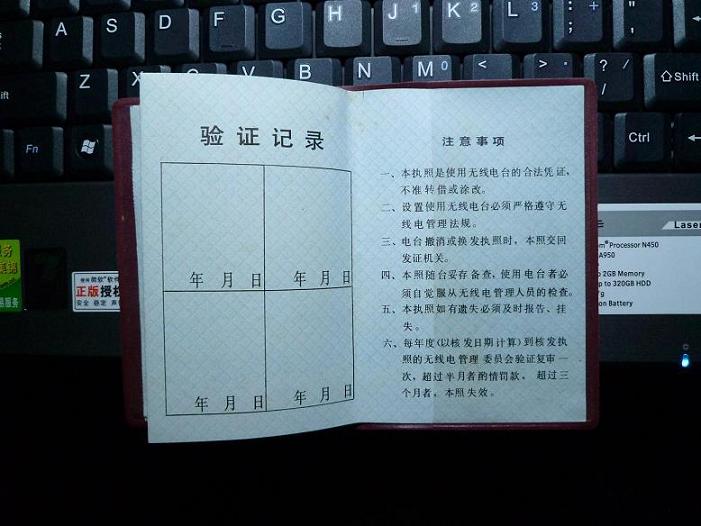 A S D F G H J 1 K 2 L 3 : ; * +
Z X C V B N M 0 < , > . ? / Shift
Fn Ctrl
验证记录
年 月 日 年 月 日
年 月 日 年 月 日
注意事项
一、本执照是使用无线电台的合法凭证，
不准转借或涂改。
二、设置使用无线电台必须严格遵守无
线电管理法规。
三、电台撤消或换发执照时，本照交回
发证机关。
四、本照随台妥存备查，使用电台者必
须自觉服从无线电管理人员的检查。
五、本执照如有遗失必须及时报告、挂
失。
六、每年度（以核发日期计算）到核发执
照的无线电管理委员会验证复审一
次，超过半月者酌情罚款，超过三
个月者，本照失效。
正版授权
安全 稳定
Laser
Processor N450
A950
2GB Memory
up to 320GB HDD
on Battery